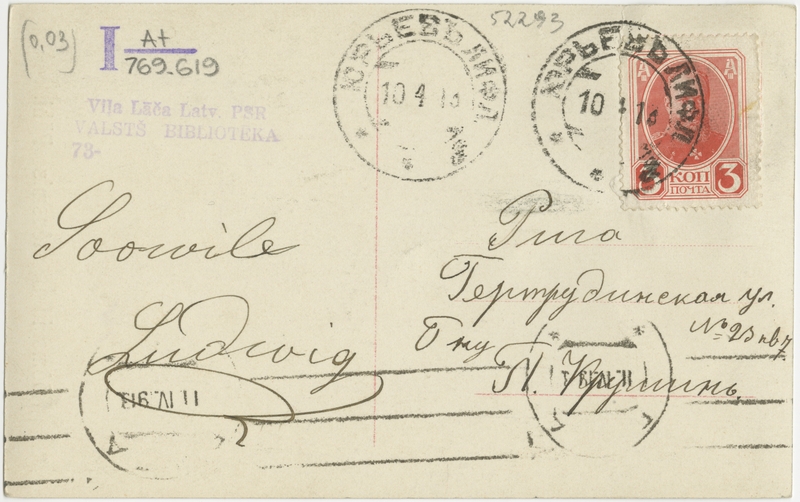 (0,03)
I A+
769-619
52293
Viļa Lāča Latv. PSR
VALSTS BIBLIOTEKA
73-
ЮРЬЕВЪ ЛИФЛ
10 4 13
ЮРЬЕВЪ ЛИФЛ
10 4 13
3 КОП 3
ПОЧТА
Soowib
Ludwig
Рига
Гертрудинская ул.
№ 23 кв 7
Г-ну
11.IV.913